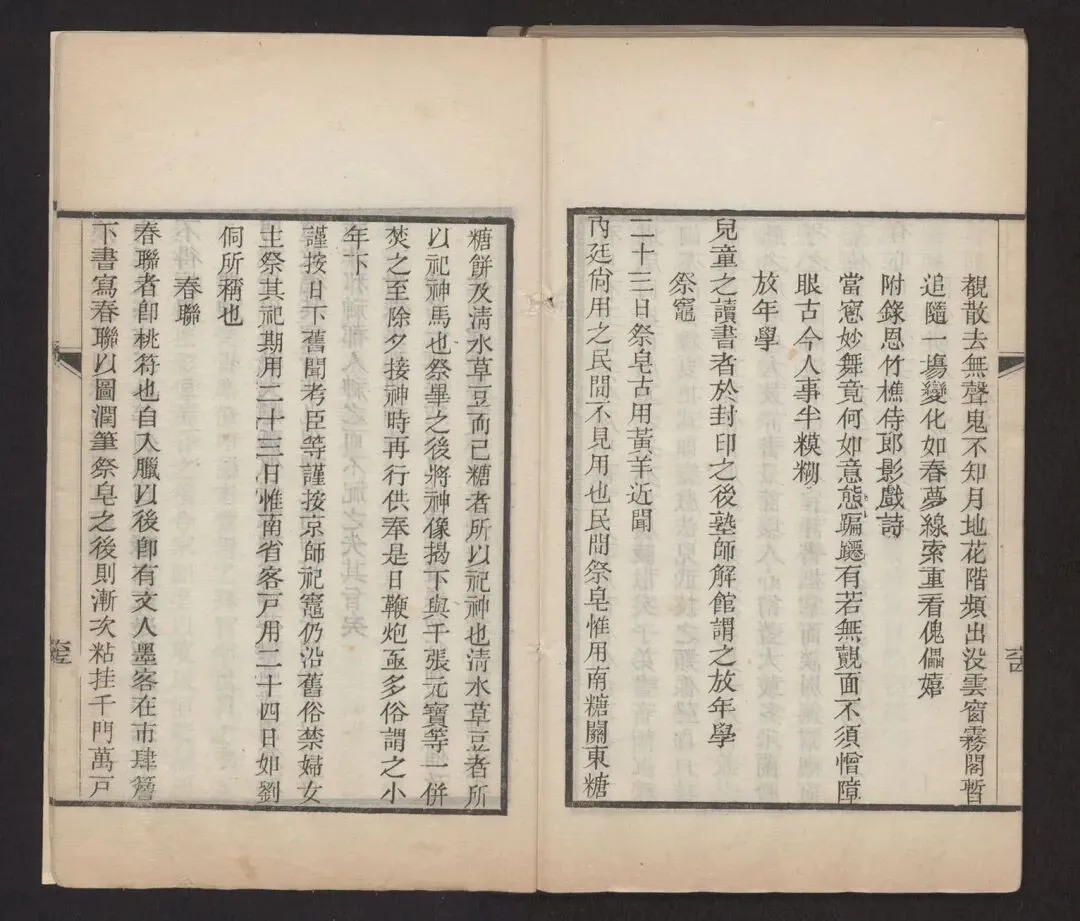 覩散去無聲鬼不知月地花階頻出没雲窗霧閣暫
追隨一塲變化如春夢線索重看傀儡嬉
附錄恩竹樵侍郎影戲詩
當窻妙舞竟何如意態蹁躚有若無覿面不須憎障
眼古今人事半糢糊
放年學
兒童之讀書者於封印之後塾師解館謂之放年學
祭竈
二十三日祭皂古用黃羊近聞
內廷尙用之民間不見用也民間祭皂惟用南糖關東糖
糖餅及淸水草豆而已糖者所以祀神也淸水草豆者所
以祀神馬也祭畢之後將神像揭下與千張元寶等一併
焚之至除夕接神時再行供奉是日鞭炮亟多俗謂之小
年下
謹按日下舊聞考臣等謹按京師祀竈仍沿舊俗禁婦女
主祭其祀期用二十三日惟南省客戶用二十四日如劉
侗所稱也
春聯
春聯者卽桃符也自入臘以後卽有文人墨客在市肆簷
下書寫春聯以圖潤筆祭皂之後則漸次粘挂千門萬戶